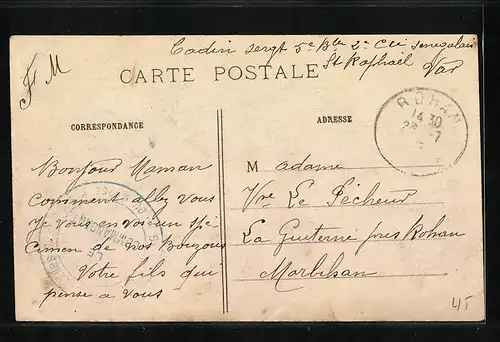 Cadin sergt 5e Bln 2e Cie senegalais
St Raphaël
Var
F M
CARTE POSTALE
CORRESPONDANCE
ADRESSE
ROHAN
14 30
Bonjour Maman
Comment allez vous
Je vous envois un spé
cimen de nos Bouzous
Votre fils qui
pense a vous
LE
COMMANDANT
M adame
Vve Le Pécheur
La Guiterne pres Rohan
Morbihan